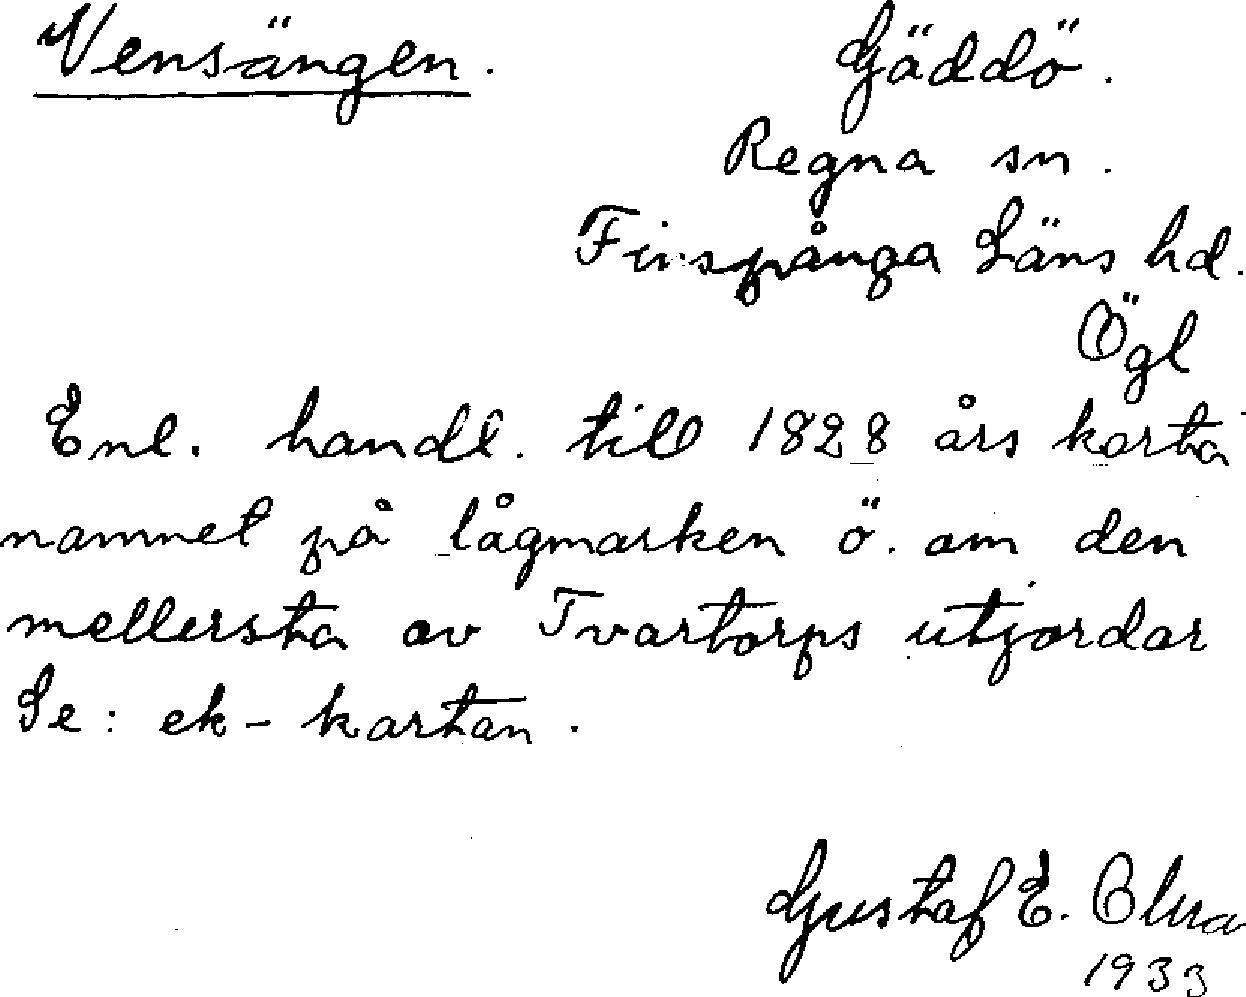 Vensängen. Gäddö.
Regna sn.
Finspånga Läns hd.
Ögl
Enl. handl. till 1828 års karta
namnet på lågmarken ö. om den
mellersta av Tvartorps utjordar
Se: ek-kartan.
Gustaf E.
1933